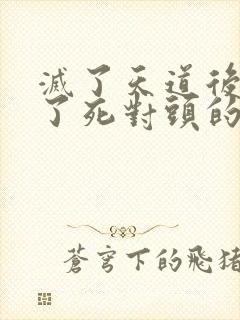 滅了天道後
了死對頭的
蒼穹下的飛豬